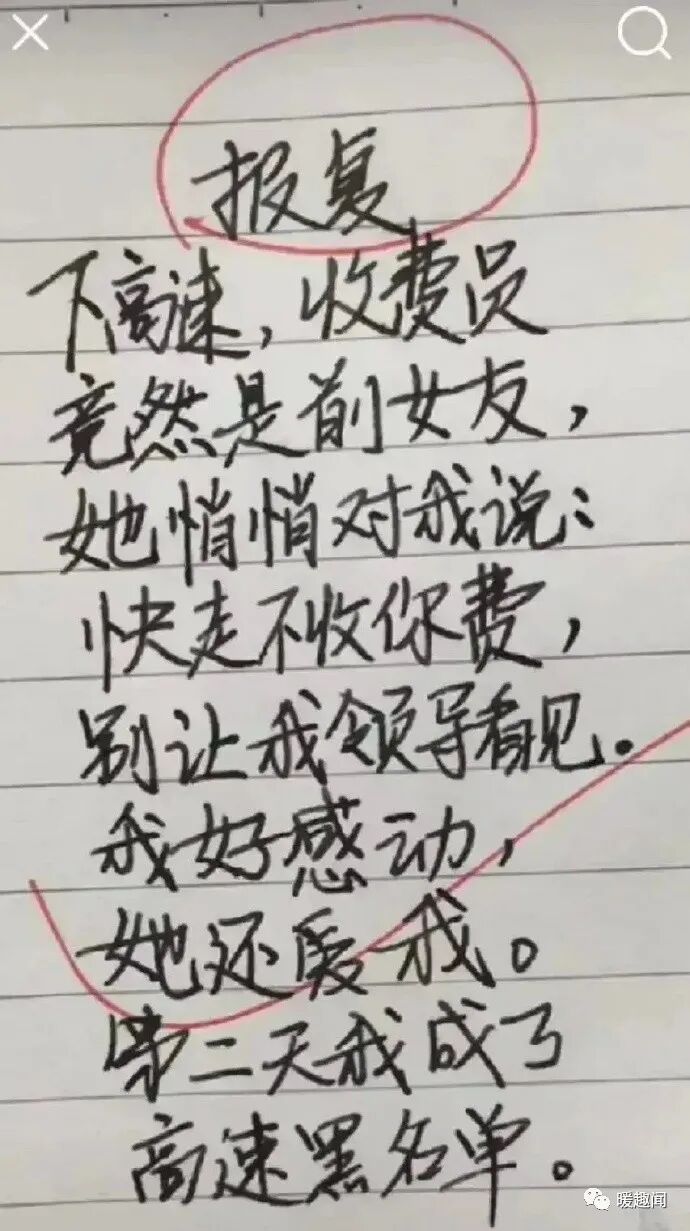 报复
下高速，收费员
竟然是前女友，
她悄悄对我说：
快走不收你费，
别让我领导看见。
我好感动，
她还爱我。
第二天我成了
高速黑名单。
暖趣闻